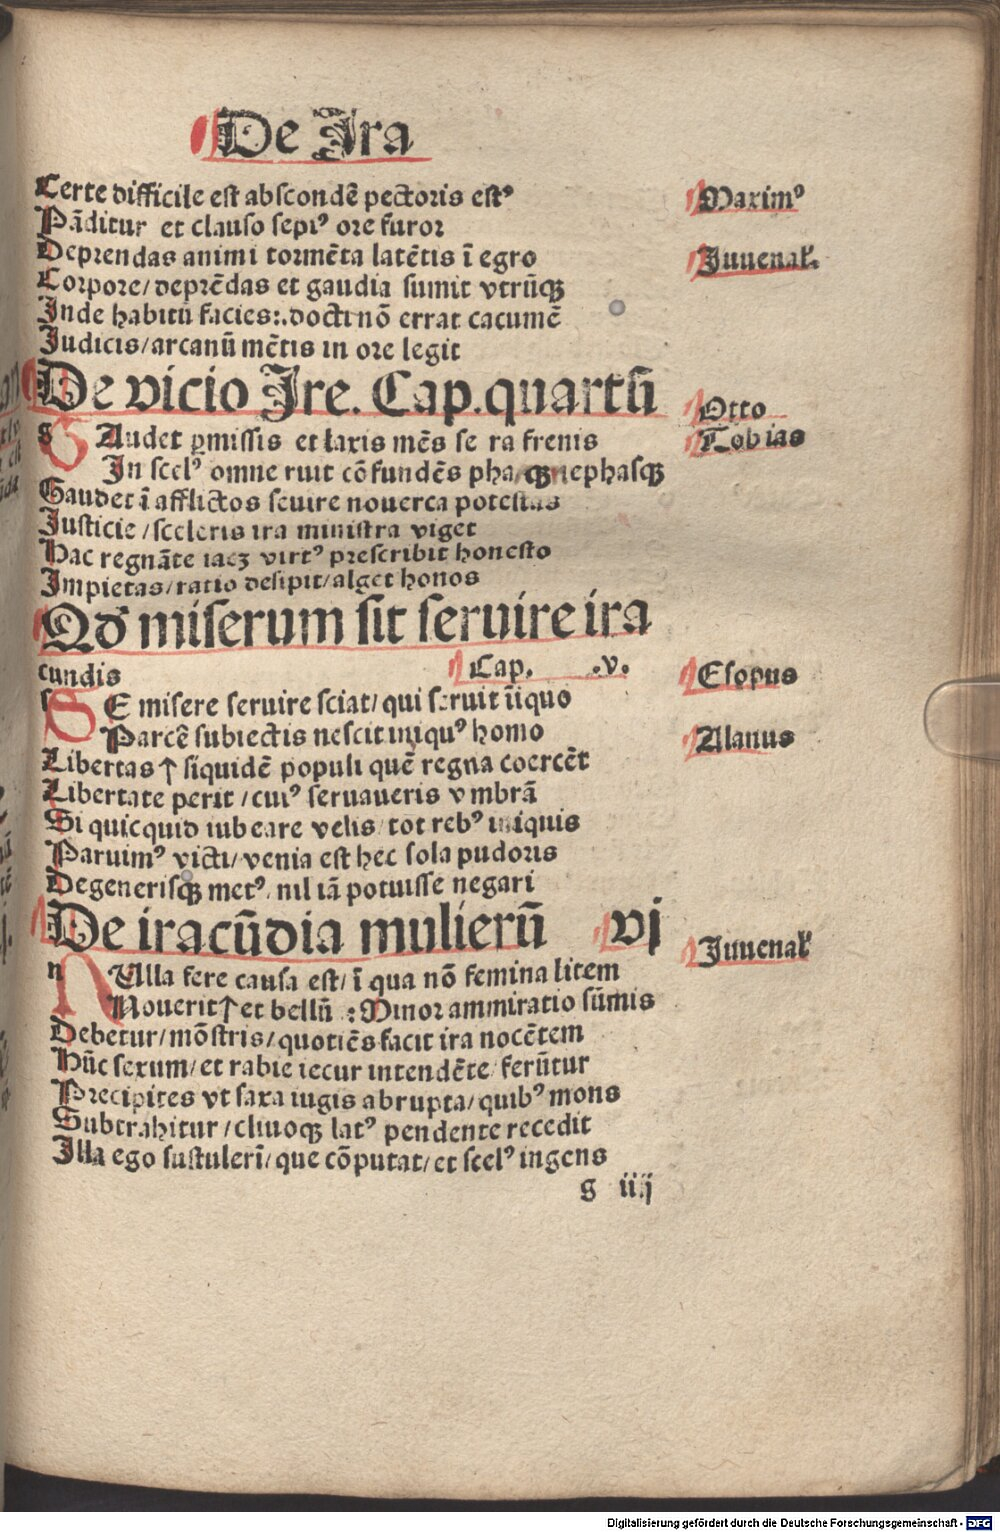 De Ira
Certe difficile est abscondē pectoris estꝰ
Maximꝰ
Pāditur et clauso sepiꝰ ore furor
Deprendas animi tormēta latētis ī egro
Iuuenal.
Corpore/ deprēdas et gaudia sumit vtrūqꝫ
Inde habitū facies:. docti nō errat cacumē
Iudicis/ arcanū mētis in ore legit
De vicio Ire. Cap. quartū
Otto
g Audet ꝑmissis et laxis mēs se ra frenis
Tobias
In scelꝰ omne ruit cōfundēs phasqꝫ nephasqꝫ
Gaudet ī afflictos seuire nouerca potestas
Iusticie/ sceleris ira ministra viget
Hac regnāte iacꝫ virtꝰ prescribit honesto
Impietas/ ratio desipit/ alget honos
Qđ miserum sit seruire ira
cundis Cap. .v.
Esopus
s E misere seruire sciat/ qui seruit īiquo
Parcē subiectis nescit iniquꝰ homo
Alanus
Libertas † siquidē populi quē regna coercēt
Libertate perit/ cuiꝰ seruaueris vmbrā
Si quicquid iubeare velis/ tot rebꝰ iniquis
Paruimꝰ victi/ venia est hec sola pudoris
Degenerisqꝫ metꝰ. nil iā potuisse negari
De iracūdia mulierū vj
Iuuenal
n Ulla fere causa est/ ī qua nō femina litem
Nouerit † et bellū : Minor ammiratio sūmis
Debetur/ mōstris/ quotiēs facit ira nocētem
Hūc sexum/ et rabie iecur intendēte/ ferūtur
Precipites vt saxa iugis abrupta/ quibꝰ mons
Subtrahitur/ cliuoqꝫ latꝰ pendente recedit
Illa ego sustulerī/ que cōputat/ et scelꝰ ingens
g iiij
Digitalisierung gefördert durch die Deutsche Forschungsgemeinschaft - DFG